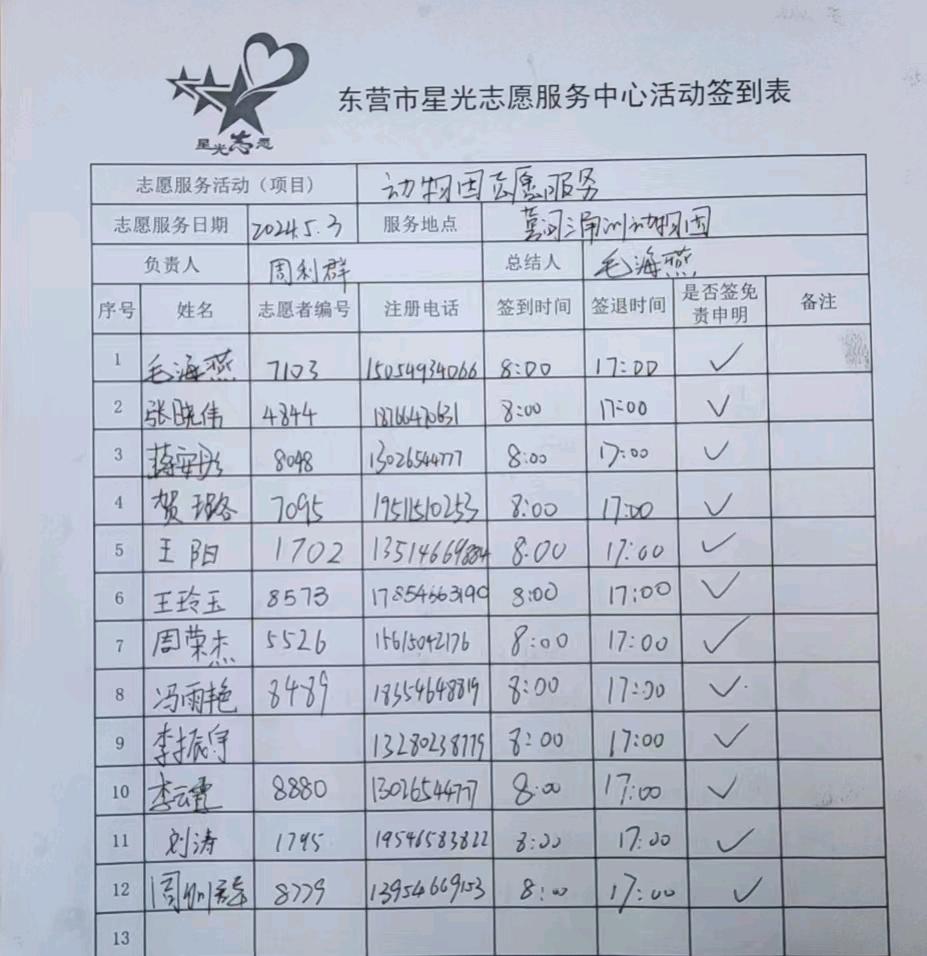 星光志愿
东营市星光志愿服务中心活动签到表
志愿服务活动（项目） 动物园志愿服务
志愿服务日期 2024.5.3 服务地点 动物园
负责人 周利群 总结人 毛海燕
序号 姓名 志愿者编号 注册电话 签到时间 签退时间 是否签免责申明 备注
1 毛海燕 7103 15054934066 8:00 17:00 ✓
2 张晓伟 4844 18766470631 8:00 17:00 ✓
3 蒋安彤 8048 13026544777 8:00 17:00 ✓
4 贺 7095 19511510253 8:00 17:00 ✓
5 王阳 1702 13514669884 8:00 17:00 ✓
6 王玲玉 8573 17854663190 8:00 17:00 ✓
7 周荣杰 5526 15615042176 8:00 17:00 ✓
8 冯雨艳 8489 18354648819 8:00 17:00 ✓
9 李振宇 13280238779 8:00 17:00 ✓
10 李云霞 8880 13026544777 8:00 17:00 ✓
11 刘涛 1795 19546583822 8:00 17:00 ✓
12 周利群 8779 13954669153 8:00 17:00 ✓
13